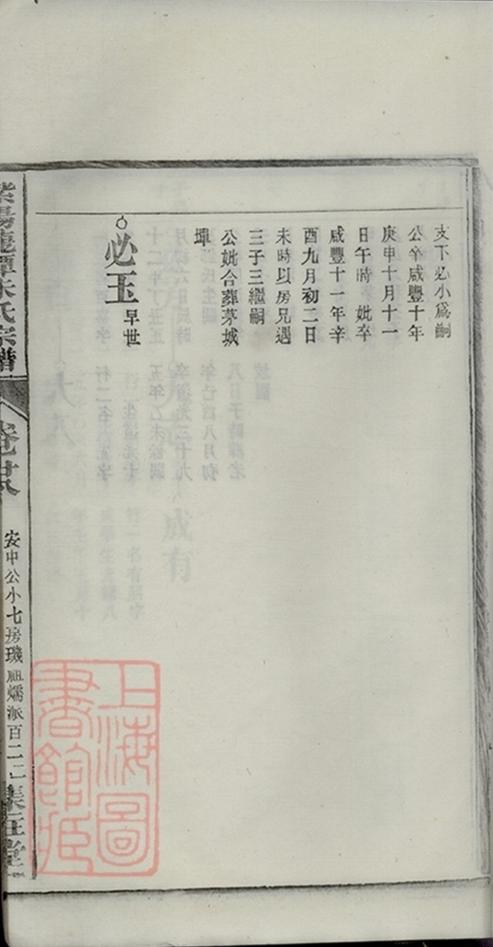 支下必小爲嗣
公卒咸豐十年
庚申十月十一
日午時 妣卒
咸豐十一年辛
酉九月初二日
未時以房兄遇
三子三繼嗣
公妣合葬茅城
必玉早世
朱氏宗譜
安中公小七房璣祖燸派百二二
上海圖書館藏